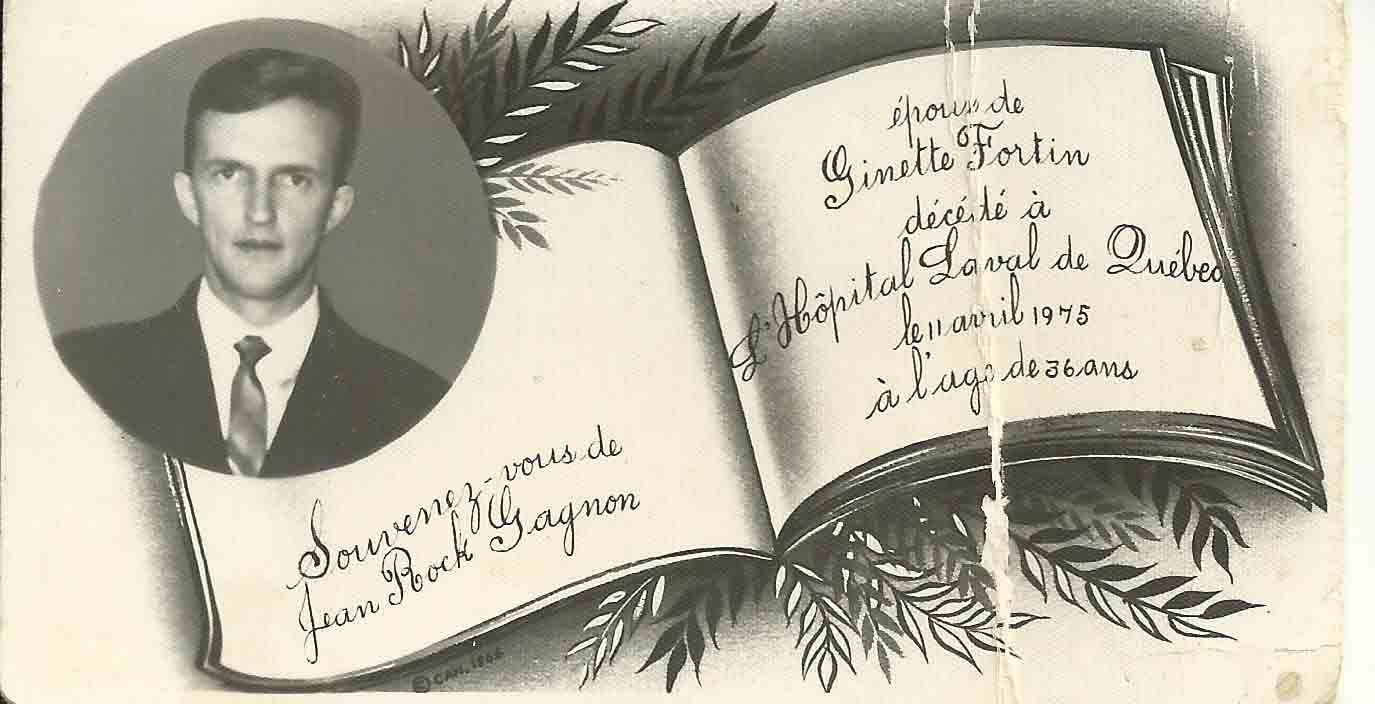 Souvenez-vous de
Jean Rock Gagnon
époux de
Ginette Fortin
décédé à
L'Hôpital Laval de Québec
le 11 avril 1975
à l'age de 36 ans
© CAN. 1966